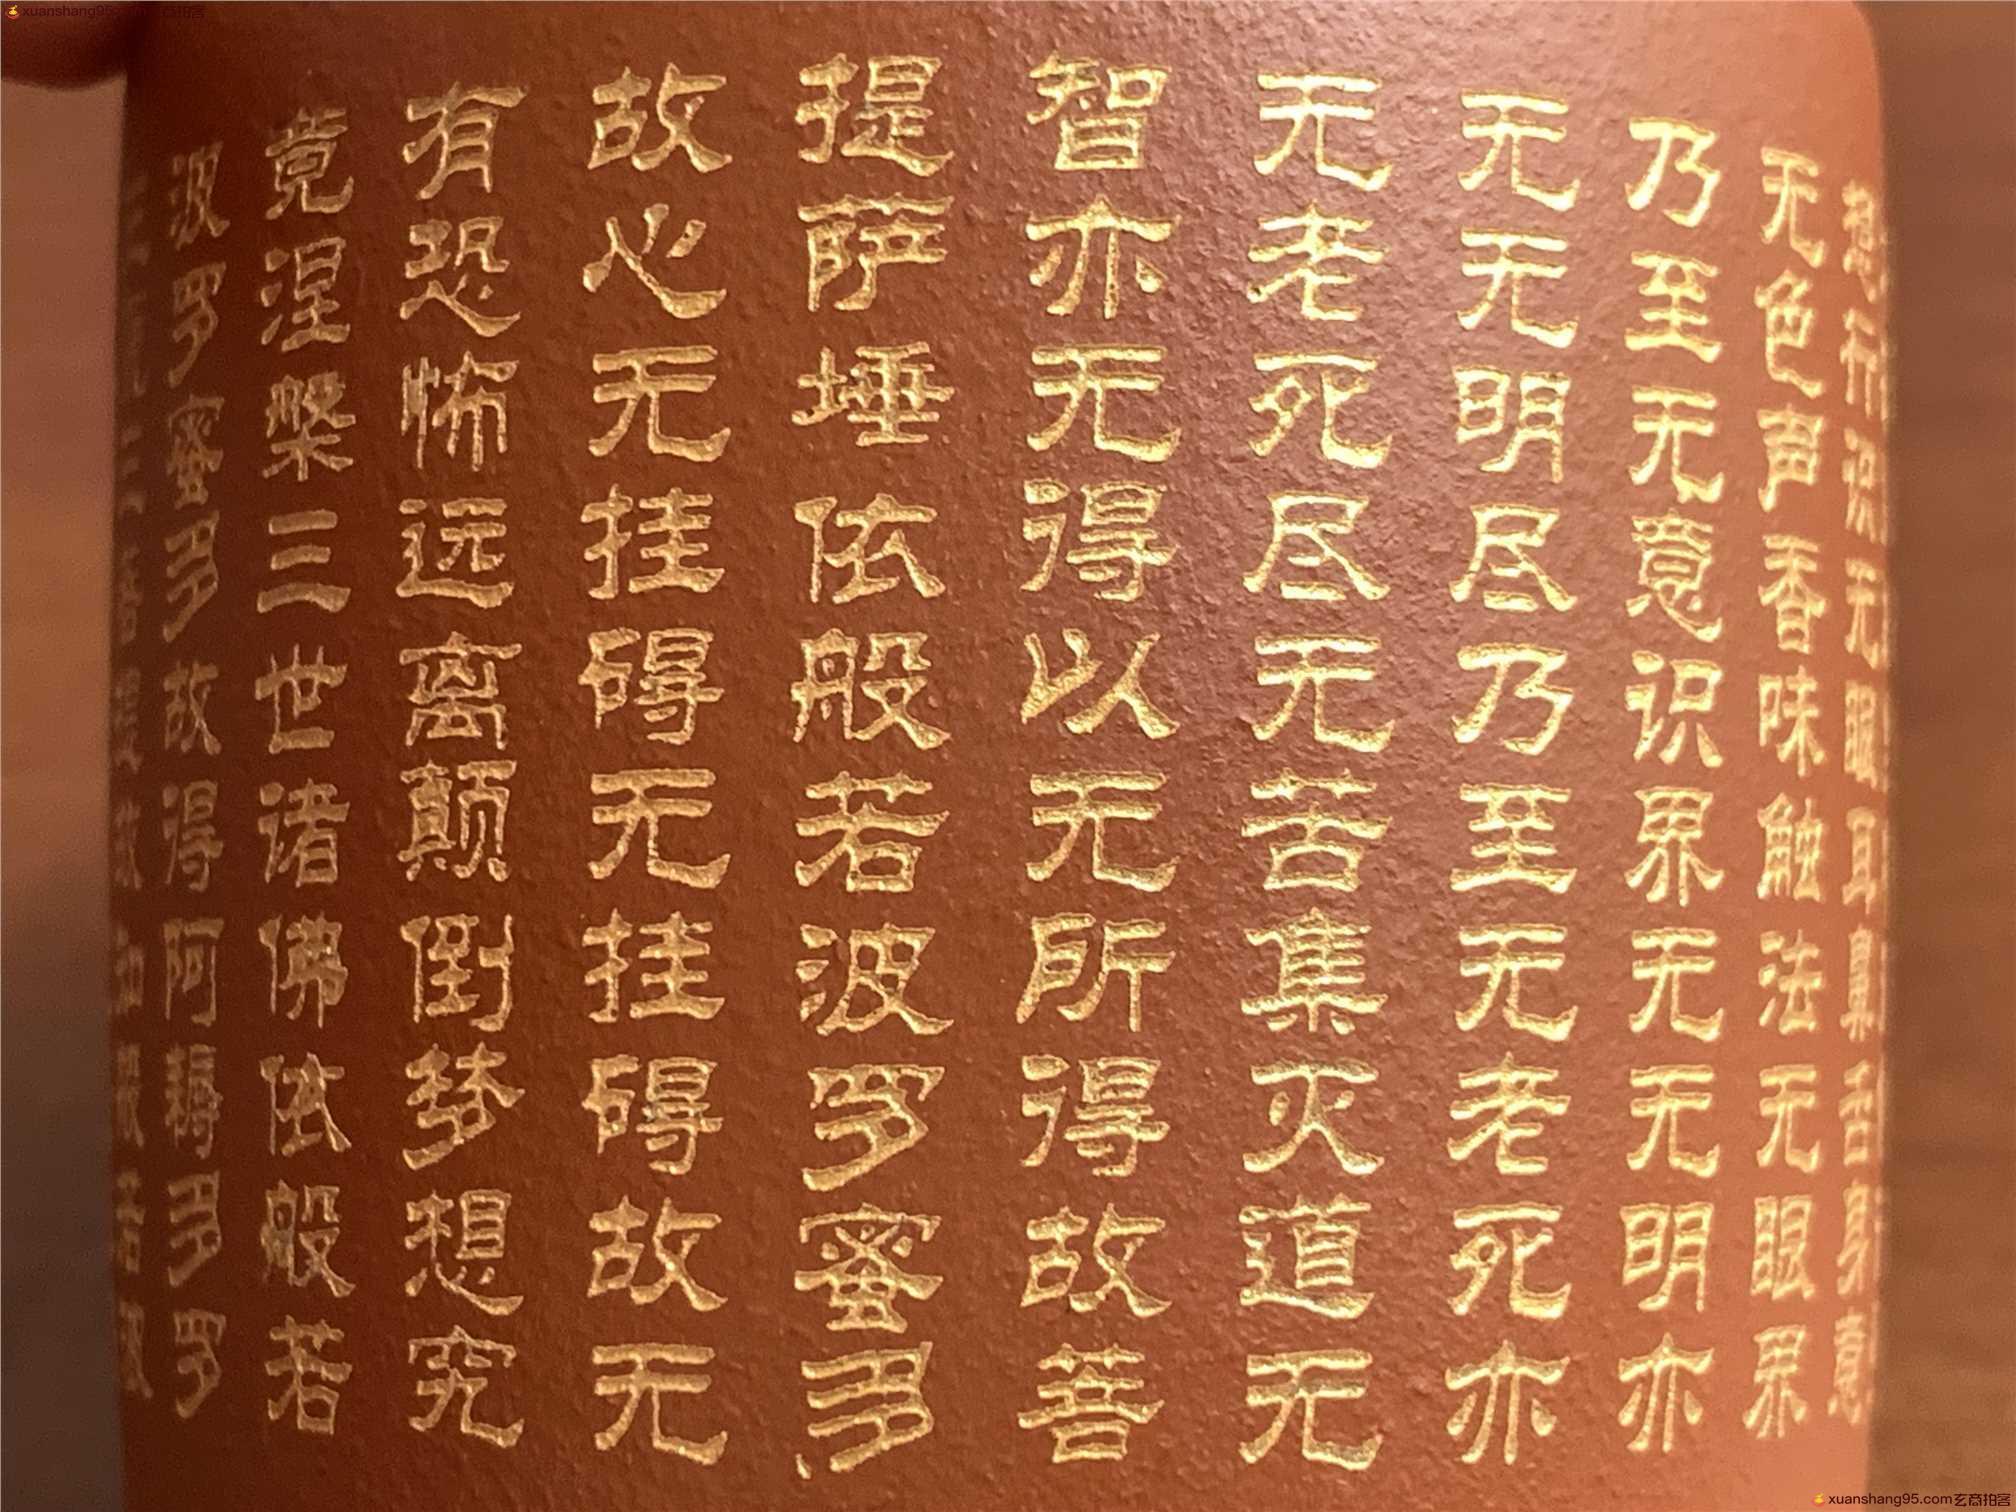 想行识无眼耳鼻舌身意
无色声香味触法无眼界
乃至无意识界无无明亦
无无明尽乃至无老死亦
无老死尽无苦集灭道无
智亦无得以无所得故菩
提萨埵依般若波罗蜜多
故心无挂碍无挂碍故无
有恐怖远离颠倒梦想究
竟涅槃三世诸佛依般若
波罗蜜多故得阿耨多罗
xuanshang95.com玄商拍客